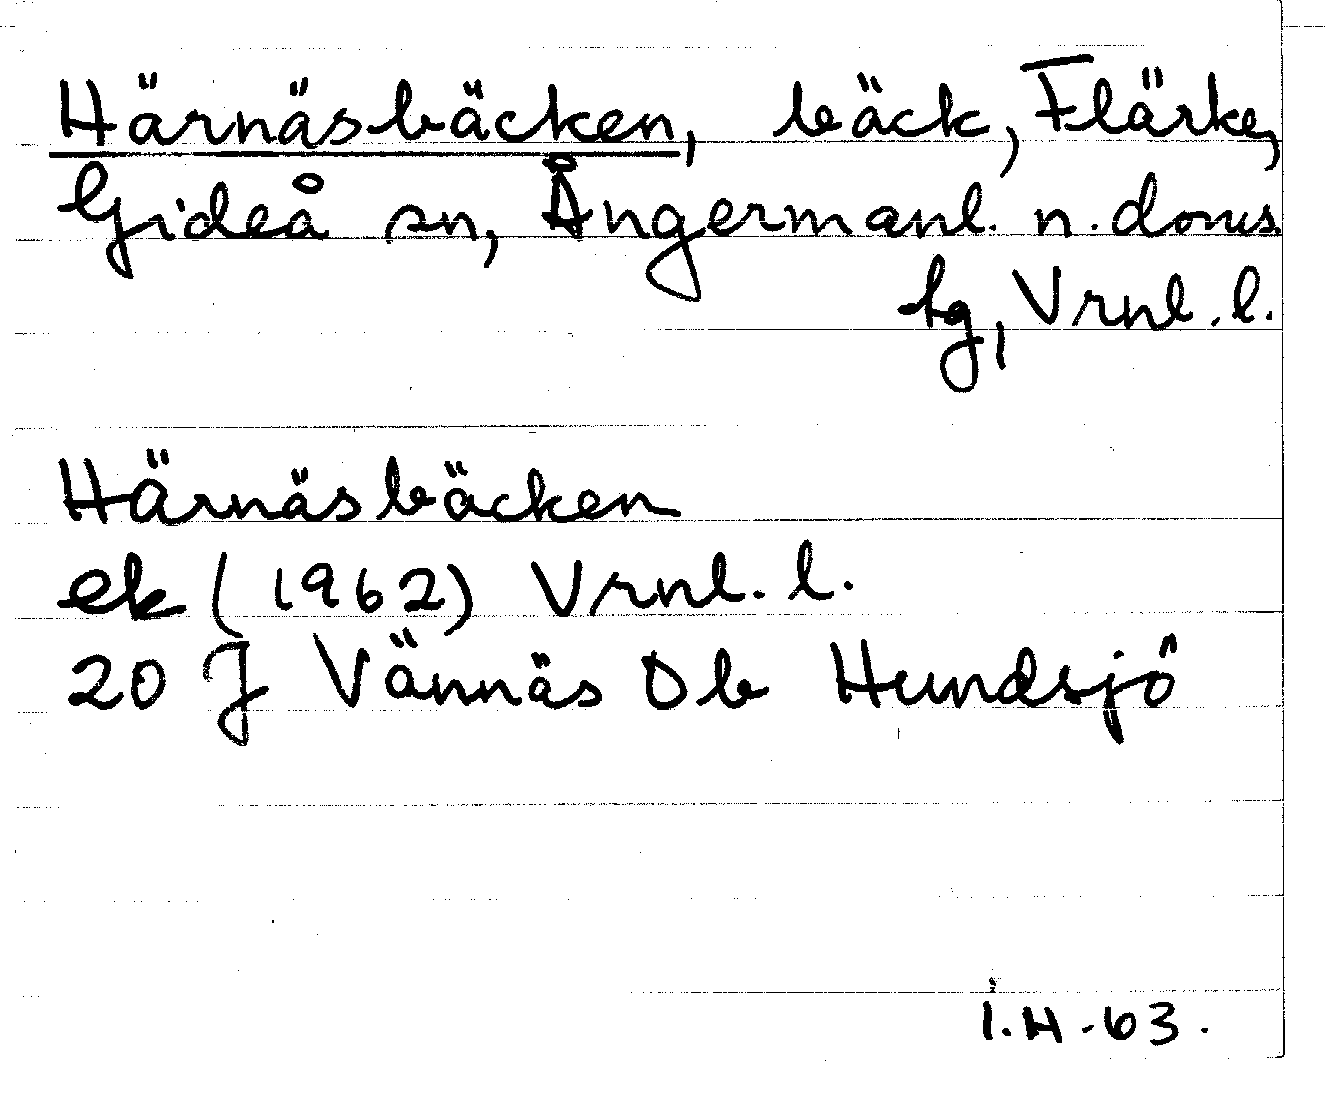 Härnäsbäcken, bäck, Flärke,
Gideå sn, Ångermanl. n. doms.
tg, Vrnl. l.
Härnäsbäcken
ek (1962) Vrnl. l.
20 J Vännäs Db Hundsjö
I.H.-63.